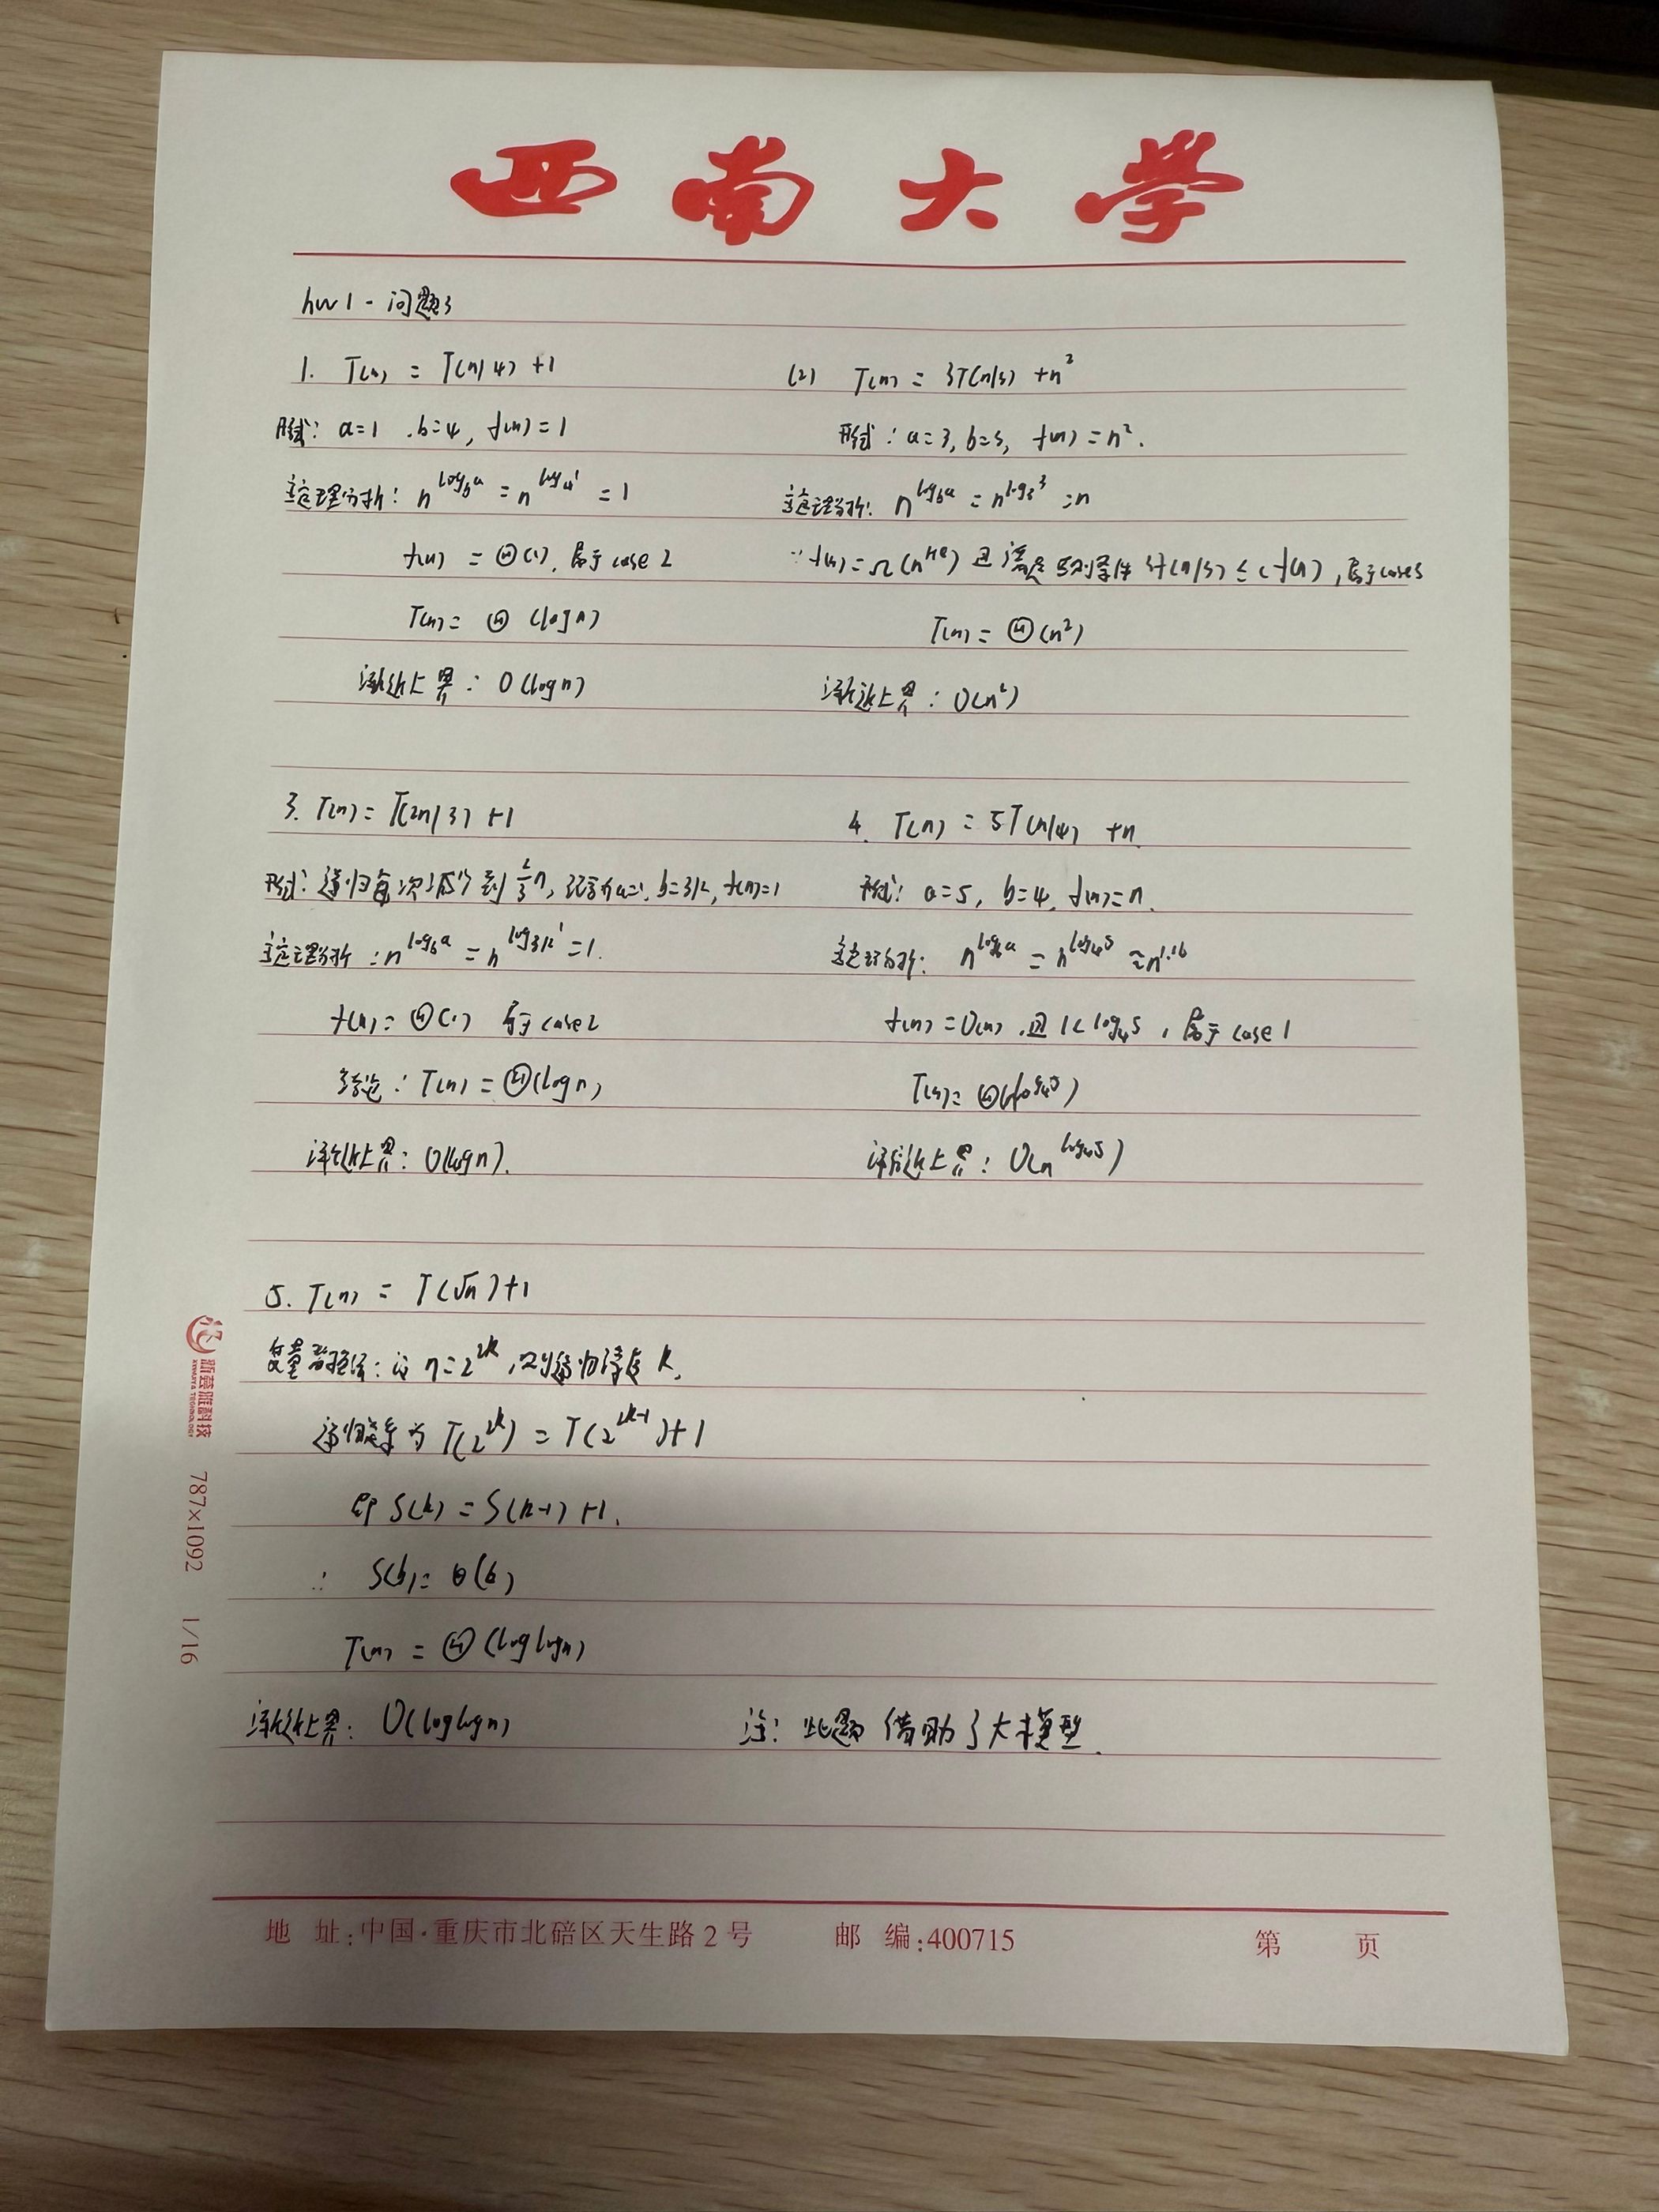 西南大学
hw1-问题3
1. T(n) = T(n/4) +1
形式: a=1 , b=4, f(n)=1
主定理分析: n^{log_b a} = n^{log_4 1} = 1
f(n) = Θ(1), 属于 case 2
T(n) = Θ(log n)
渐近上界: O(log n)
(2) T(n) = 3T(n/3) +n²
形式: a=3, b=3, f(n)=n².
主定理分析: n^{log_b a} = n^{log_3 3} =n
∵ f(n)=Ω(n^{1+ε}) 且满足正则条件 3f(n/3) ≤ c f(n), 属于case3
T(n) = Θ(n²)
渐近上界: O(n²)
3. T(n) = T(2n/3) +1
形式: 递归每次缩小到 2/3 n, a=1, b=3/2, f(n)=1
主定理分析: n^{log_b a} = n^{log_{3/2} 1} =1.
f(n) = Θ(1) 属于 case2
结论: T(n) = Θ(log n)
渐近上界: O(log n).
4. T(n) = 5T(n/4) +n.
形式: a=5, b=4, f(n)=n.
主定理分析: n^{log_b a} = n^{log_4 5} ≈n^{1.16}
f(n)=O(n), 且 1< log_4 5, 属于 case 1
T(n) = Θ(n^{log_4 5})
渐近上界: O(n^{log_4 5})
5. T(n) = T(√n)+1
变量替换法: 设 n=2^{2^k}, 则递归深度 k.
递归关系为 T(2^{2^k}) = T(2^{2^{k-1}})+1
即 S(k) = S(k-1) +1.
∴ S(k) = Θ(k)
T(n) = Θ(log log n)
渐近上界: O(log log n)
注: 此题借助了大模型.
新荟雅科技
787×1092 1/16
地 址:中国·重庆市北碚区天生路2号 邮 编:400715 第 页